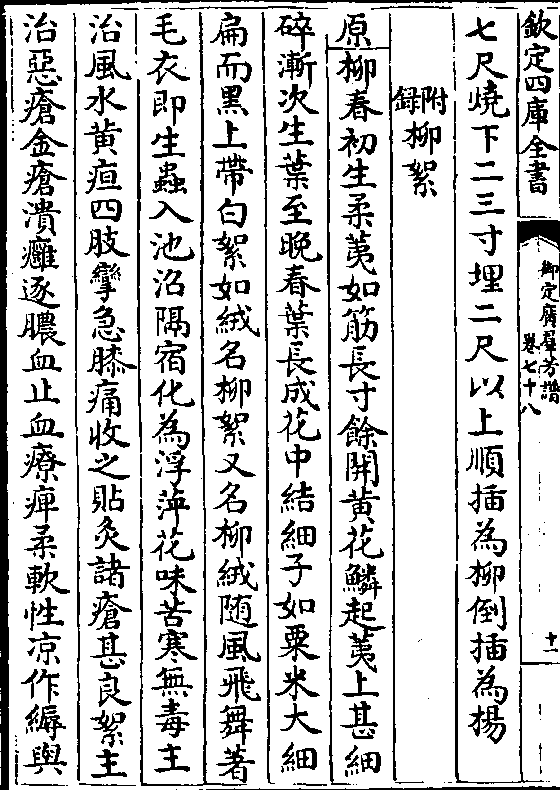 欽定四庫全書
御定廣羣芳譜
卷七十八
十一
七尺燒下二三寸埋二尺以上順插為柳倒插為楊
附錄柳絮
原柳春初生柔荑如筋長寸餘開黄花鱗起荑上甚細
碎漸次生葉至晩春葉長成花中結細子如粟米大細
扁而黑上帶白絮如絨名柳絮又名柳絨随風飛舞著
毛衣即生蟲入池沼隔宿化為浮萍花味苦寒無毒主
治風水黄疸四肢攣急膝痛收之貼灸諸瘡甚良絮主
治惡瘡金瘡潰癰逐膿血止血療痺柔軟性凉作縟與